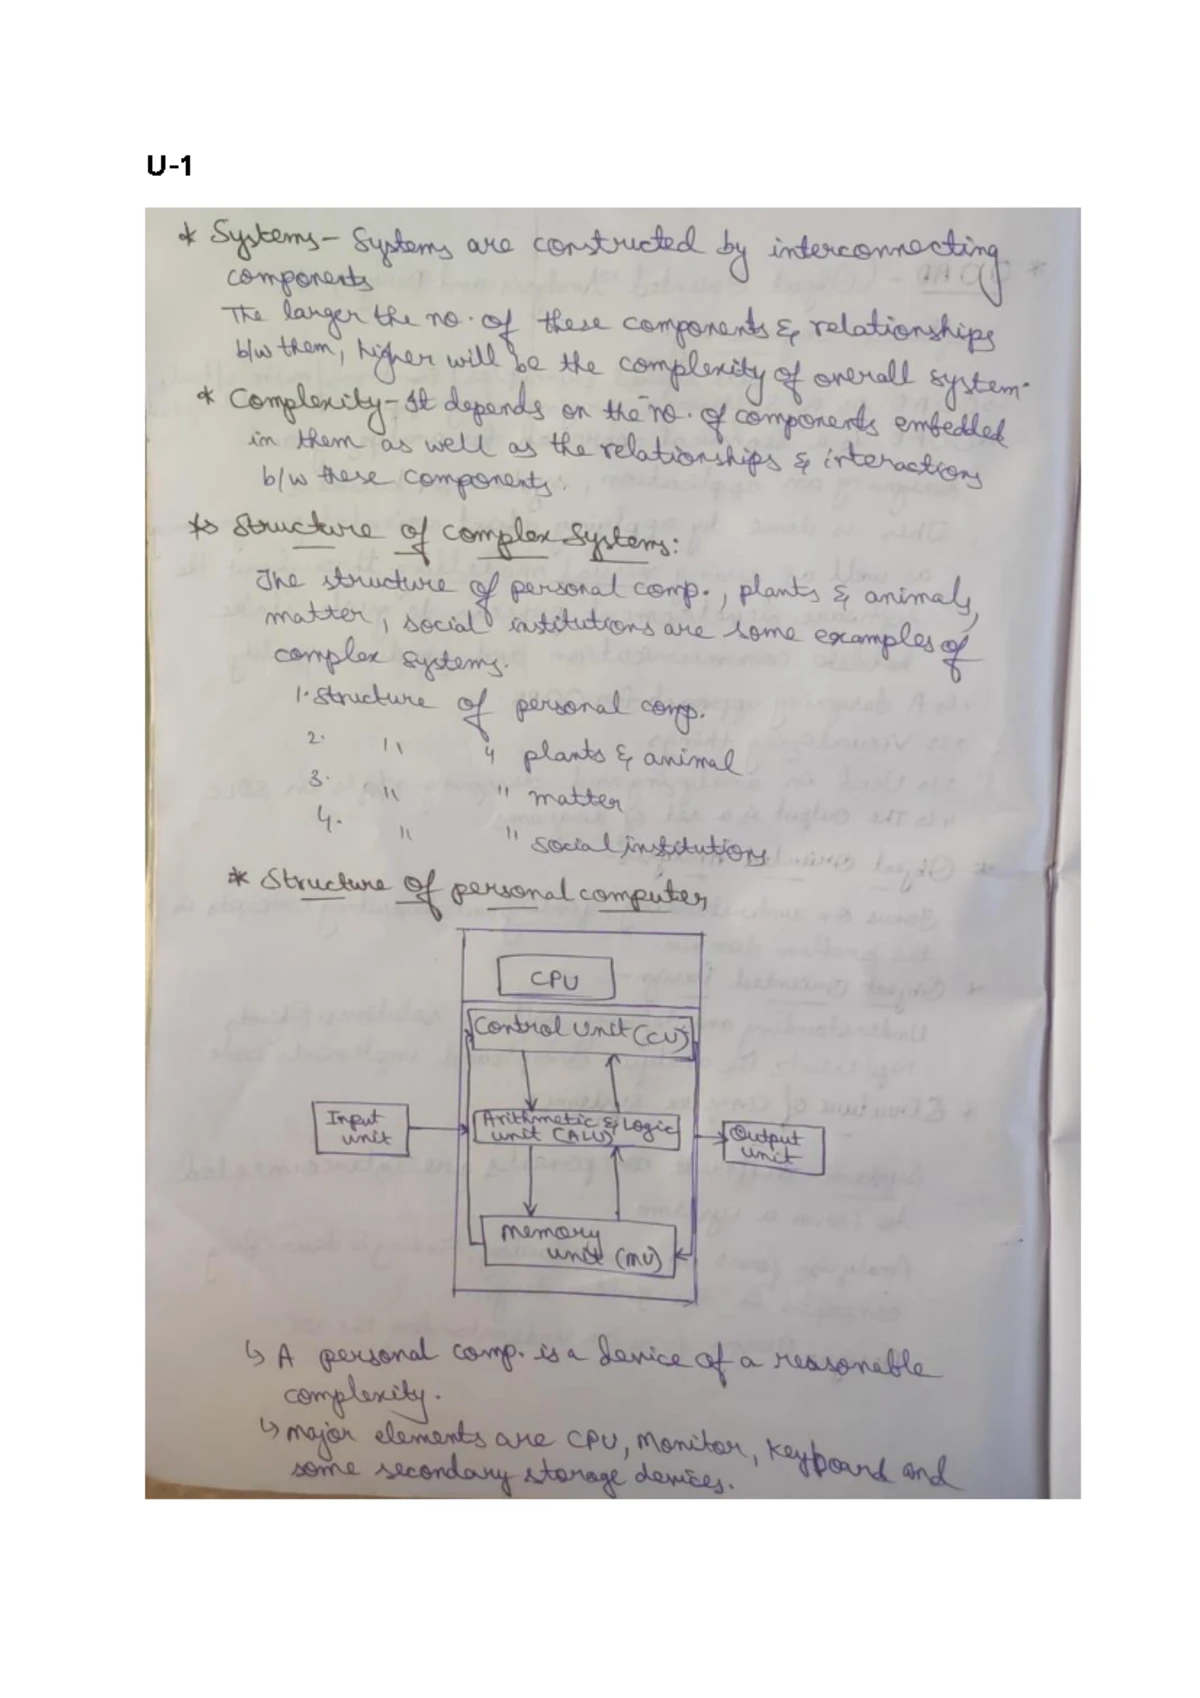 U-1
* Systems - Systems are constructed by interconnecting
components
The larger the no. of these components & relationships
b/w them, higher will be the complexity of overall system.
* Complexity - It depends on the no. of components embedded
in them as well as the relationships & interactions
b/w these components.
* Structure of complex Systems:
The structure of personal comp., plants & animals,
matter, social institutions are some examples of
complex systems.
1. Structure of personal comp.
2. " " plants & animal
3. " " matter
4. " " social institutions
* Structure of personal computer
CPU
Control Unit (CU)
Input
unit
Arithmetic & Logic
unit (ALU)
Output
unit
Memory
unit (MU)
↳ A personal comp. is a device of a reasonable
complexity.
↳ Major elements are CPU, Monitor, Keyboard and
some secondary storage devices.